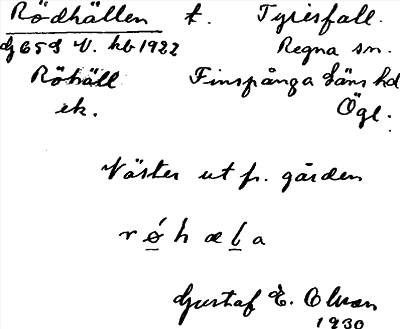 Rödhällen t. Tyrisfall.
dj 65 S V. hb 1922 Regna sn.
Röhäll Finspånga läns hd
ek. Ögl.
Väster ut fr. gården
r ø h æ l a
Gustaf E. Olson
1930